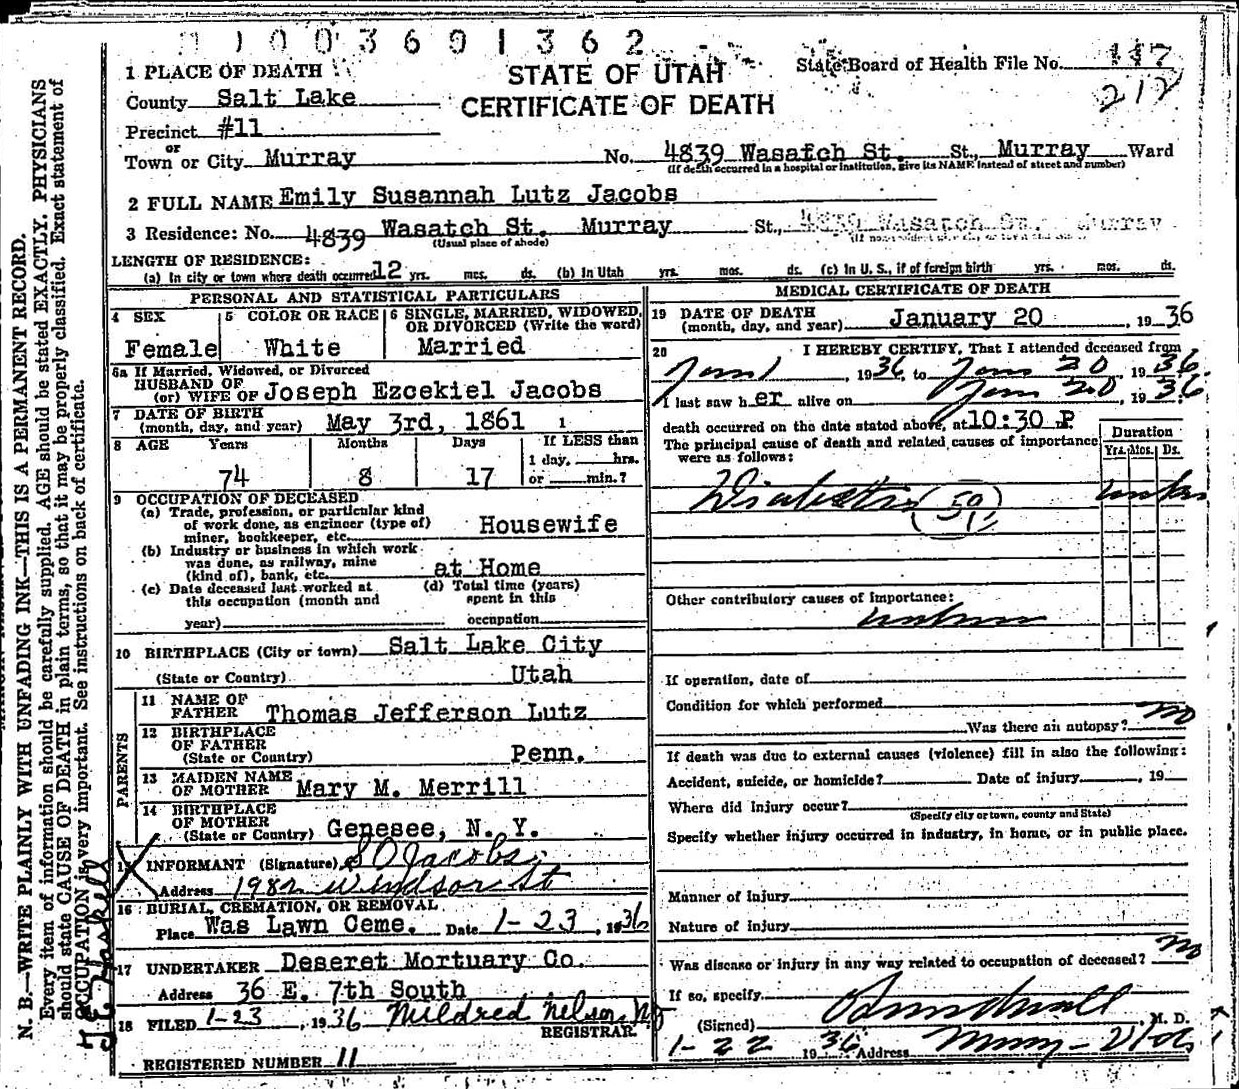 1 0 0 3 6 9 1 3 6 2
1 PLACE OF DEATH
STATE OF UTAH
CERTIFICATE OF DEATH
State Board of Health File No. 117
212
County Salt Lake
Precinct #11
or
Town or City Murray No. 4839 Wasatch St. St., Murray Ward
(If death occurred in a hospital or institution, give its NAME instead of street and number)
2 FULL NAME Emily Susannah Lutz Jacobs
3 Residence: No. 4839 Wasatch St. Murray St., 4839 Wasatch St. Murray
(Usual place of abode)
LENGTH OF RESIDENCE:
(a) In city or town where death occurred 12 yrs. mos. ds. (b) In Utah yrs. mos. ds. (c) In U. S., if of foreign birth yrs. mos. ds.
PERSONAL AND STATISTICAL PARTICULARS
4 SEX
Female
5 COLOR OR RACE
White
6 SINGLE, MARRIED, WIDOWED, OR DIVORCED (Write the word)
Married
6a If Married, Widowed, or Divorced
HUSBAND OF
(or) WIFE OF Joseph Ezcekiel Jacobs
7 DATE OF BIRTH
(month, day, and year) May 3rd, 1861
8 AGE Years Months Days If LESS than
1 day, hrs.
74 8 17 or min.?
9 OCCUPATION OF DECEASED
(a) Trade, profession, or particular kind
of work done, as engineer (type of)
miner, bookkeeper, etc. Housewife
(b) Industry or business in which work
was done, as railway, mine
(kind of), bank, etc. at Home
(c) Date deceased last worked at
this occupation (month and
year)
(d) Total time (years)
spent in this
occupation
10 BIRTHPLACE (City or town) Salt Lake City
(State or Country) Utah
PARENTS
11 NAME OF
FATHER Thomas Jefferson Lutz
12 BIRTHPLACE
OF FATHER
(State or Country) Penn.
13 MAIDEN NAME
OF MOTHER Mary M. Merrill
14 BIRTHPLACE
OF MOTHER
(State or Country) Genesee, N. Y.
15 INFORMANT (Signature) S O Jacobs
Address 1982 Windsor St
16 BURIAL, CREMATION, OR REMOVAL
Place Was Lawn Ceme. Date 1-23, 1936
17 UNDERTAKER Deseret Mortuary Co.
Address 36 E. 7th South
18 FILED 1-23, 1936 Mildred Nelson
REGISTRAR
REGISTERED NUMBER 11
MEDICAL CERTIFICATE OF DEATH
19 DATE OF DEATH
(month, day, and year) January 20, 1936
20 I HEREBY CERTIFY, That I attended deceased from
Jan 1, 1936, to Jan 20, 1936.
I last saw her alive on Jan 20, 1936
death occurred on the date stated above, at 10:30 P. M.
The principal cause of death and related causes of importance
were as follows:
Duration
Yrs. Mos. Ds.
Diabetes 59
Other contributory causes of importance:
unknown
If operation, date of
Condition for which performed
Was there an autopsy? no
If death was due to external causes (violence) fill in also the following:
Accident, suicide, or homicide? Date of injury, 19
Where did injury occur?
(Specify city or town, county and State)
Specify whether injury occurred in industry, in home, or in public place.
Manner of Injury
Nature of injury
Was disease or injury in any way related to occupation of deceased? no
If so, specify
(Signed) M. D.
1-22 1936 Address Murray - Utah
N. B.—WRITE PLAINLY WITH UNFADING INK—THIS IS A PERMANENT RECORD.
Every item of information should be carefully supplied. AGE should be stated EXACTLY. PHYSICIANS
should state CAUSE OF DEATH in plain terms, so that it may be properly classified. Exact statement of
OCCUPATION is very important. See instructions on back of certificate.